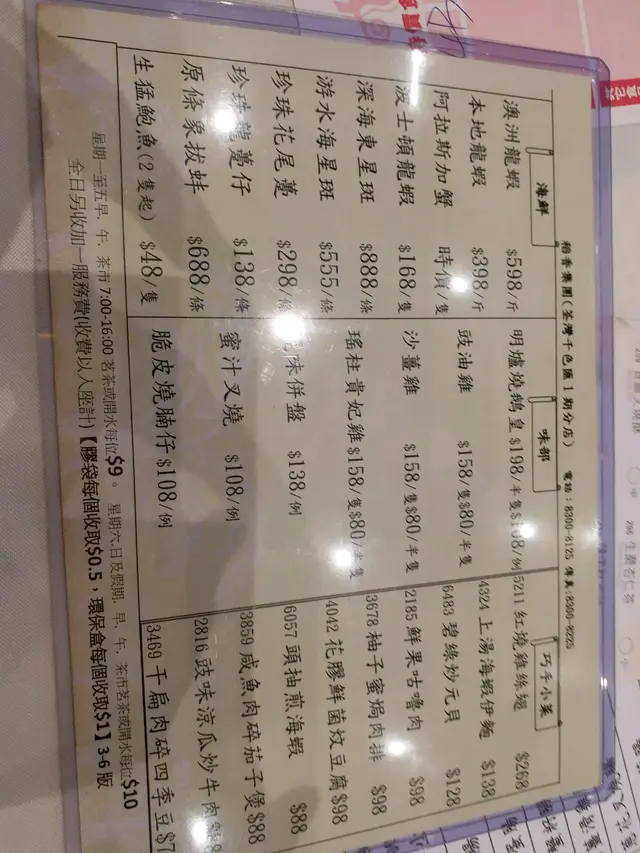 稻香集團(荃灣千色匯1期分店) 電話:8300-8125 傳真:8300-9225
海鮮
澳洲龍蝦 $598/斤
本地龍蝦 $398/斤
阿拉斯加蟹 時價/隻
波士頓龍蝦 $168/隻
深海東星斑 $888/條
游水海星斑 $555/條
珍珠花尾躉 $298/條
珍珠龍躉仔 $138/條
原條象拔蚌 $688/條
生猛鮑魚(2隻起) $48/隻
味部
明爐燒鵝皇 $198/半隻 $108/例
豉油雞 $158/隻 $80/半隻
沙薑雞 $158/隻 $80/半隻
瑤柱貴妃雞 $158/隻 $80/半隻
味併盤 $138/例
蜜汁叉燒 $108/例
脆皮燒腩仔 $108/例
巧手小菜
5211 紅燒雞絲翅 $268
4324 上湯海蝦伊麵 $138
6483 碧綠炒元貝 $128
2185 鮮果咕嚕肉 $98
3678 柚子蜜焗肉排 $98
4042 花膠鮮菌炆豆腐 $98
6057 頭抽煎海蝦 $88
3859 咸魚肉碎茄子煲 $88
2816 豉味涼瓜炒牛肉
3469 干扁肉碎四季豆
星期一至五早、午、茶市 7:00-16:00 茗茶或開水每位$9。 星期六日及假期、早、午、茶市茗茶或開水每位$10
全日另收加一服務費(收費以人座計)【膠袋每個收取$0.5,環保盒每個收取$1】3-6 版
296 生磨杏仁茶